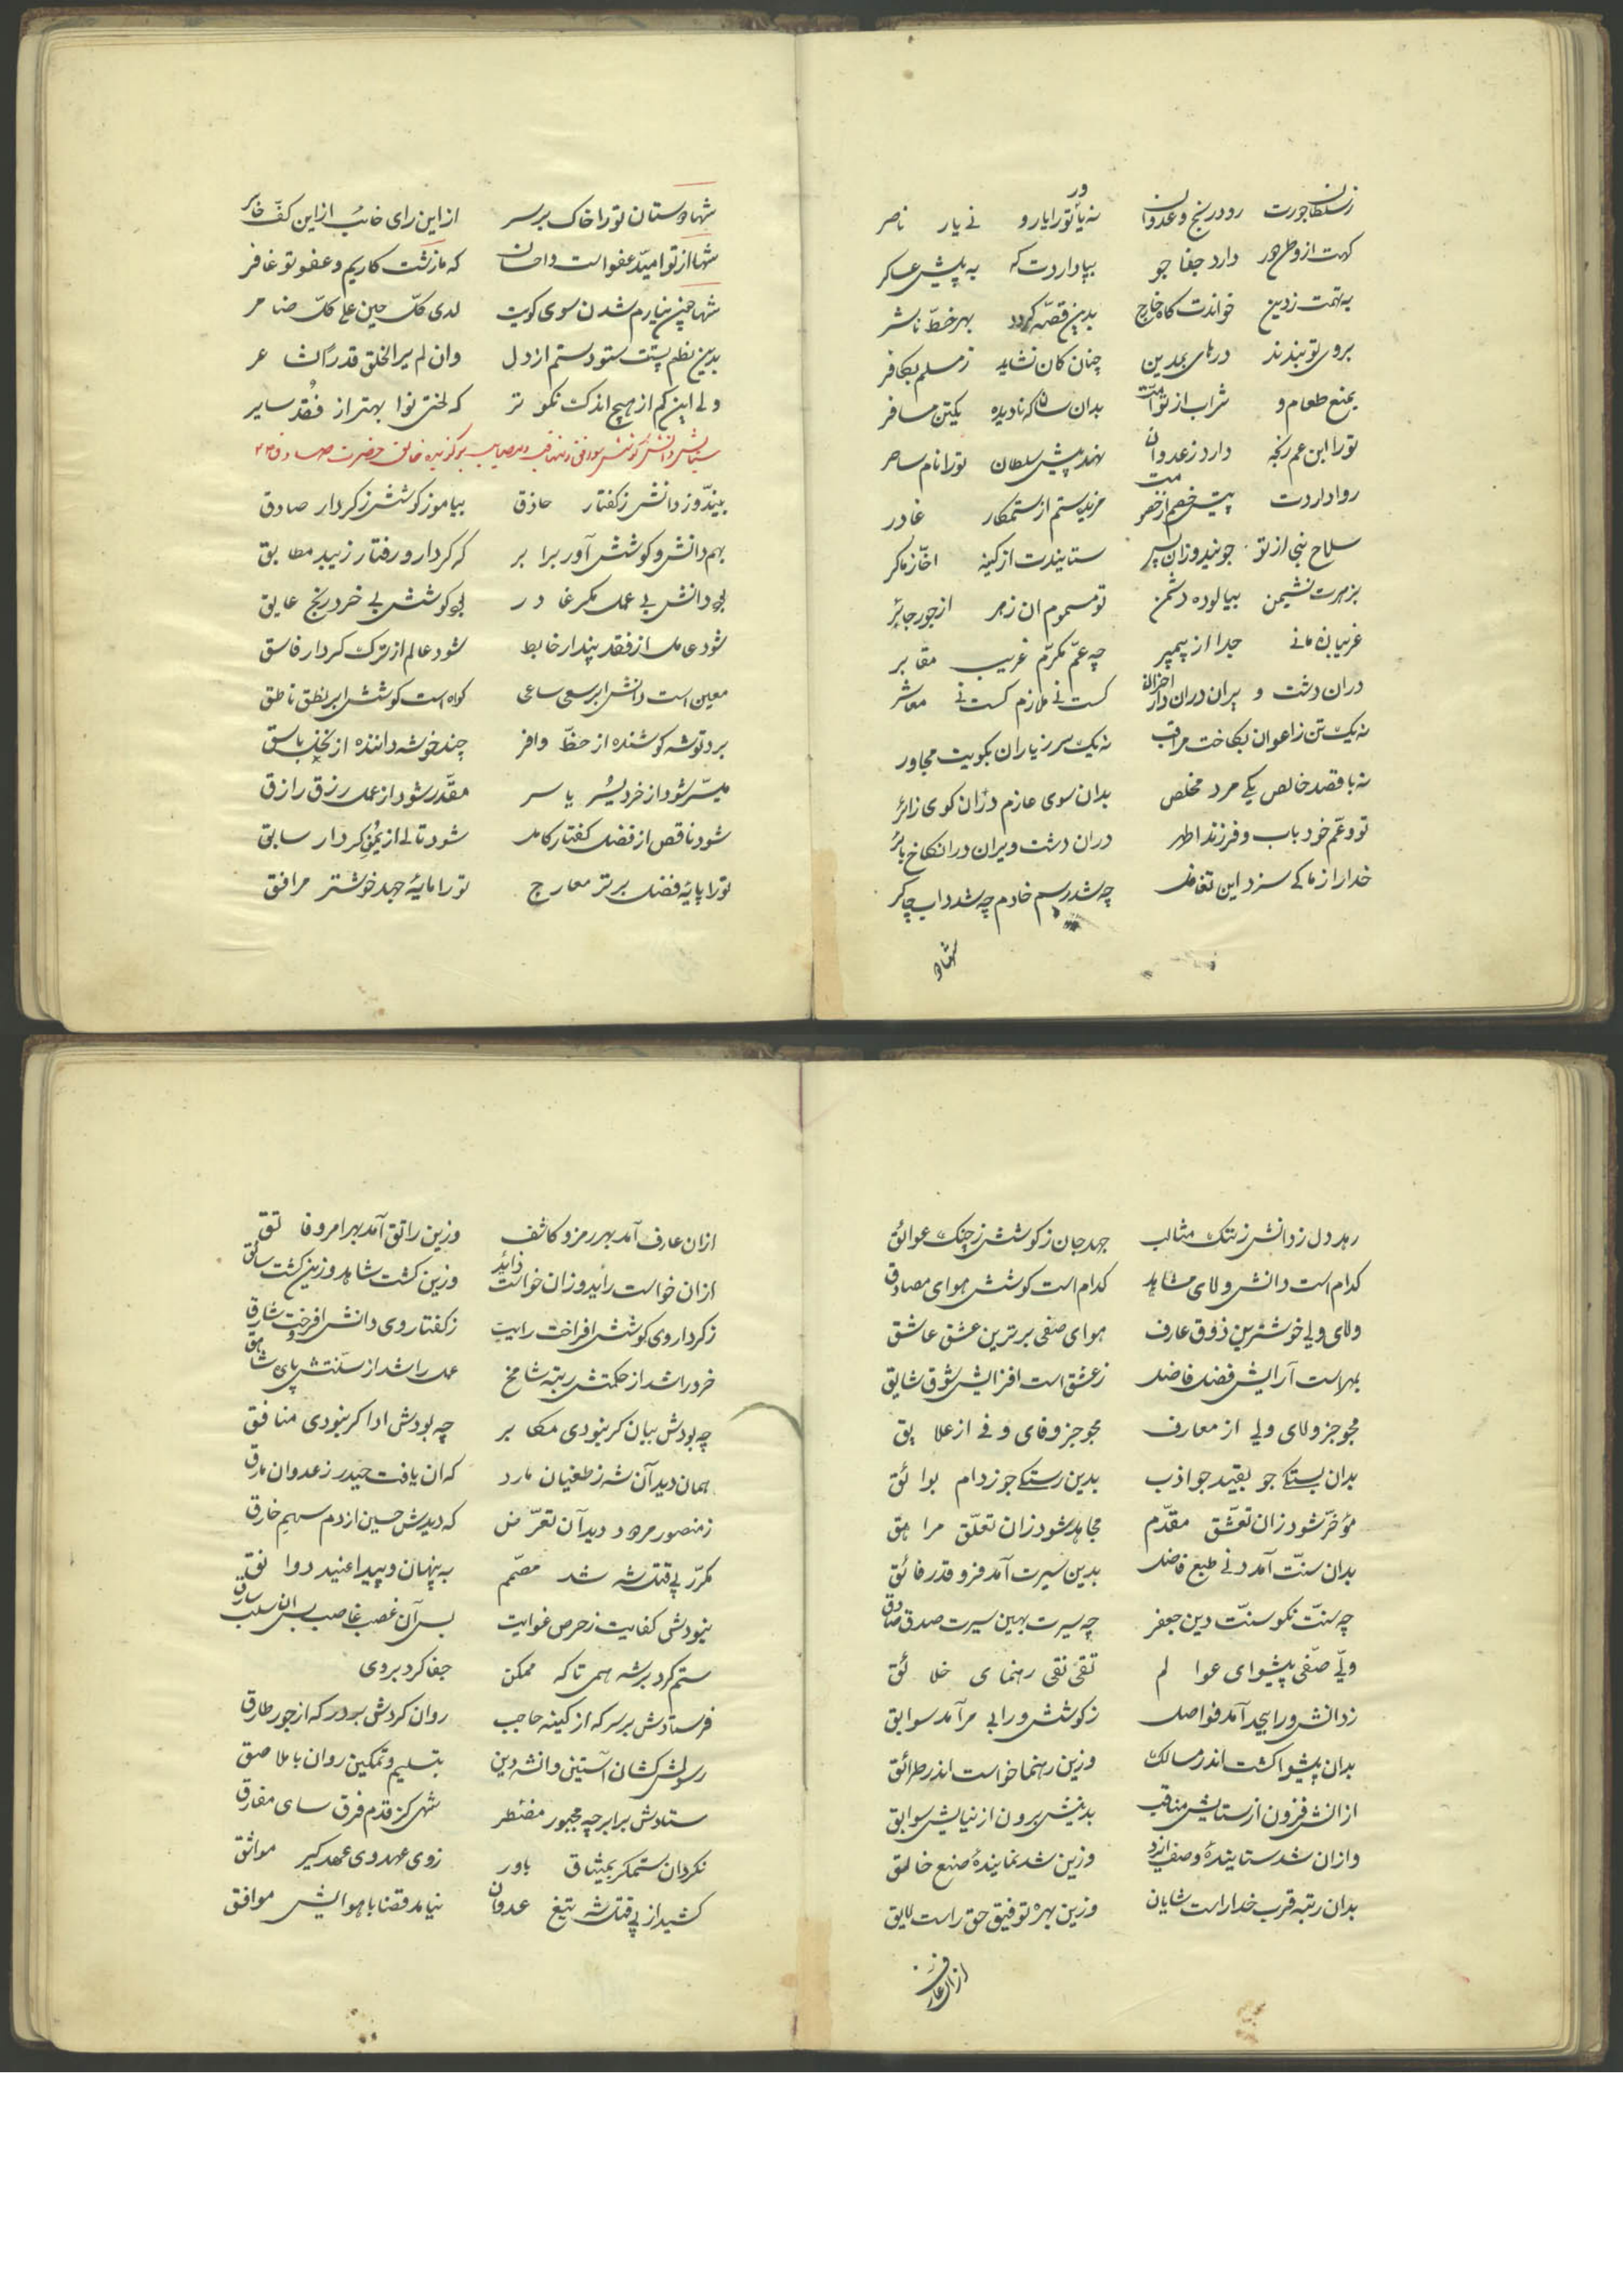 ز سلطان جورت رود رنج و عدوان نه یاور تو را یار و نی یار ناصر
گهت از وطن دور دارد جفا جو بپا داردت گه به پیش عساکر
به تهمت ز دین خواندت گاه خارج بدین قصه گردد بهر خط ناشر
بروی تو بندند درهای مدین چنان کان نشاید ز مسلم بکافر
بمنع طعام و شراب از تو امت بدان سان که نادیده یکتن مسافر
تو را ابن عم رنجه دارد ز عدوان نهد پیش سلطان تو را نام ساحر
روا داردت پیش خصم از مزید ستم از ستمکار غادر
سلاح نبی از تو جویند و زان پس ستانیدت از کینه اخاز ماکر
بزهرت نشیمن بیالوده دشمن تو مسموم ان زهر از جور جائر
غریبانه مانی جدا از پیمبر چه عم مکرم غریب مقابر
دران دشت ویران دران دار احزان کست نی ملازم کست نی معاشر
نه یک تن ز اعوان بکاخت مراقب نه یک سر ز یاران بکویت مجاور
نه با قصد خالص یکی مرد مخلص بدان سوی عازم دران کوی زائر
تو و عم خود باب و فرزند اطهر دران دشت ویران دران کاخ بائر
خدا را ز ما کی سزد این تغافل چه شد رسم خادم چه شد داب چاکر
شها دوستان تو را خاک بر سر از این رای خائب از این کف خاسر
شها از تو امید عفو است و احسان که ما زشت کاریم و عفو تو غافر
شها چنین نیارم شدن سوی کویت لدی کل حین علی کل ضامر
بدین نظم پستت ستودستم از دل وان لم یر الخلق قدرا لشاعر
ولی این کم از هیچ اندک نکوتر که لختی نوا بهتر از فقد سایر
ستایش دانش و کوشش برگزیده خالق حضرت صادق
بیندوز دانش ز گفتار حاذق بیاموز کوشش ز کردار صادق
بهم دانش و کوشش آور برابر که کردار و رفتار زیبد مطابق
بجو دانش بی عمل مکر غادر بجو کوشش بی خرد رنج عایق
شود عامل از فقد پندار خابط شود عالم از ترک کردار فاسق
معین است دانش ابر سعی ساعی گواه است کوشش ابر نطق ناطق
برد توشه کوشنده از حظ وافر چند خوشه داننده از نخل باسق
میسر شود از خرد یسر یاسر مقدر شود از عمل رزق رازق
شود ناقص از فضل گفتار کامل شود تالی از یمن کردار سابق
تو را پایهٔ فضل برتر معارج تو را مایهٔ جهد خوشتر مرافق
رهد دل ز دانش ز تنک مثالب جهد جان ز کوشش ز چنک عوائق
کدام است دانش ولای مشاهد کدام است کوشش هوای مصادق
ولای ولی خوشترین ذوق عارف هوای صفی برترین عشق عاشق
بمهر است آرایش فضل فاضل ز عشق است افزایش شوق شایق
مجو جز ولای ولی از معارف مجو جز وفای وفی از علایق
بدان بستگی جو بقید جواذب بدین رستگی جو ز دام بوائق
مؤخر شود زان تعشق مقدم مجاهد شود زان تعلق مراهق
بدان سنت آمد دنی طبع فاضل بدین سیرت آمد فرو قدر فائق
چه سنت نکو سنت دین جعفر چه سیرت بهین سیرت صدق صادق
ولی صفی پیشوای عوالم تقی نقی رهنمای خلائق
ز دانش ورا بیحد آمد فواضل ز کوشش ورا بی مر آمد سوابق
بدان پیشوا گشت اندر مسالک وزین رهنما خواست اندر طرائق
از انش فزون از ستایش مناقب بدینش برون از نیایش سوابق
وازان شد ستایندهٔ وصف ایزد وزین شد نمایندهٔ صنع خالق
بدان رتبه قرب خدا راست شایان وزین بهره توفیق حق راست لایق
ازان عارف
ازان عارف آمد بهر رمز و کاشف وزین راتق آمد بهر امر و فاتق
ازان خواست رائد وزان خواست ذاید وزین گشت شاهد وزین گشت سائق
ز کردار روی کوشش افراخت رایت ز گفتار روی دانش افروخت شارق
خرد را شد از حکمتش رتبه شامخ عمل را شد از سنتش پایه شاهق
چه بودش بیان گر نبودی مکابر چه بودش ادا گر نبودی منافق
همان دید آن شه ز طغیان مارد که ان یافت حیدر ز عدوان مارق
ز منصور مردود دید آن تعرض که دیدش حسین از دم سهم خارق
مکرر پی قتل شه شد مصمم به پنهان و پیدا عنید دوانق
نبودش کفایت ز حرص غوایت بس آن غصب غاصب بس ان سلب سارق
ستم کرد بر شه همی تا که ممکن جفا کرد بر وی
فرستادش بر سر که از کینه حاجب روان کردش بر در که از جور طارق
رسولش کشان آستین وانشه دین بتسلیم و تمکین روان با ملاصق
ستادش برابر چه مجبور مضطر شهی کز قدم فرق سای مفارق
نکردان ستمگر بمیثاق باور ز وی عهد وی عهد گیر مواثق
کشید از پی قتل شه تیغ عدوان نیامد قضا با هوایش موافق